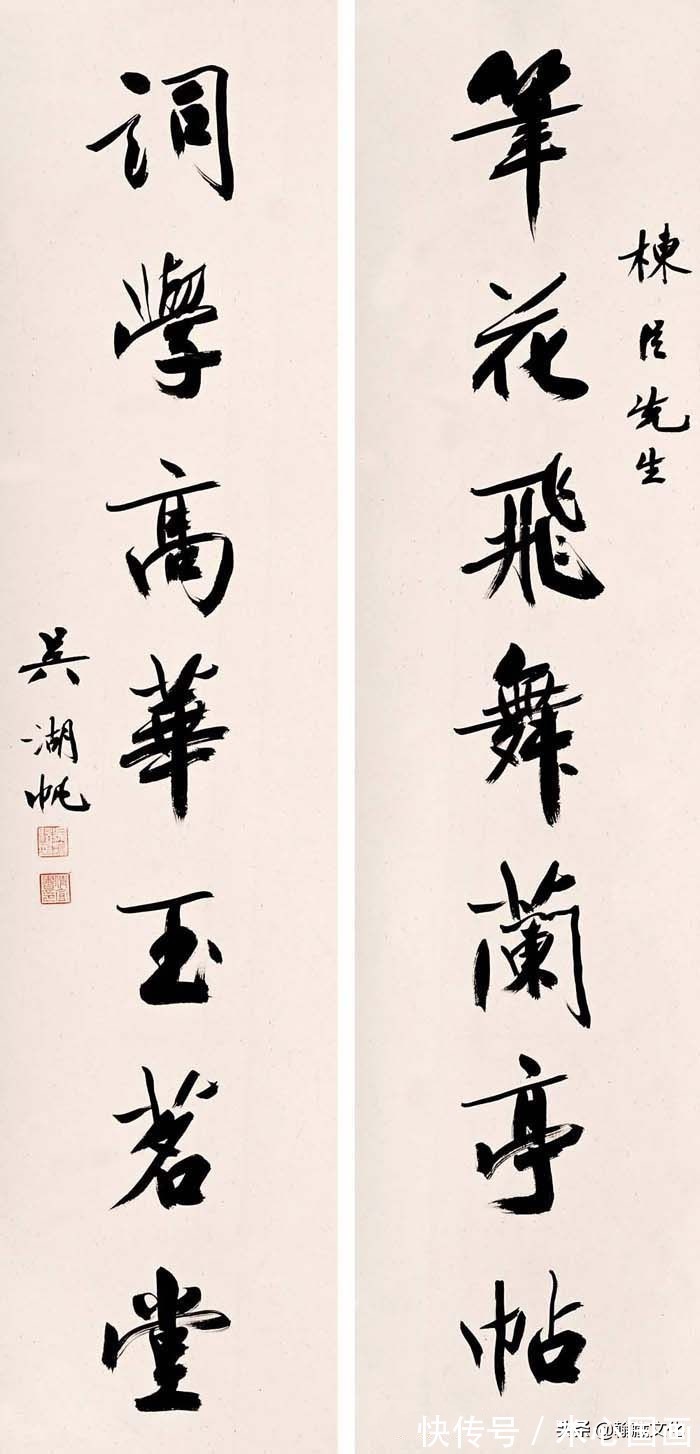 棟臣先生
筆花飛舞蘭亭帖
詞學高華玉茗堂
吳湖帆
快传号/
头条@翰墨文化